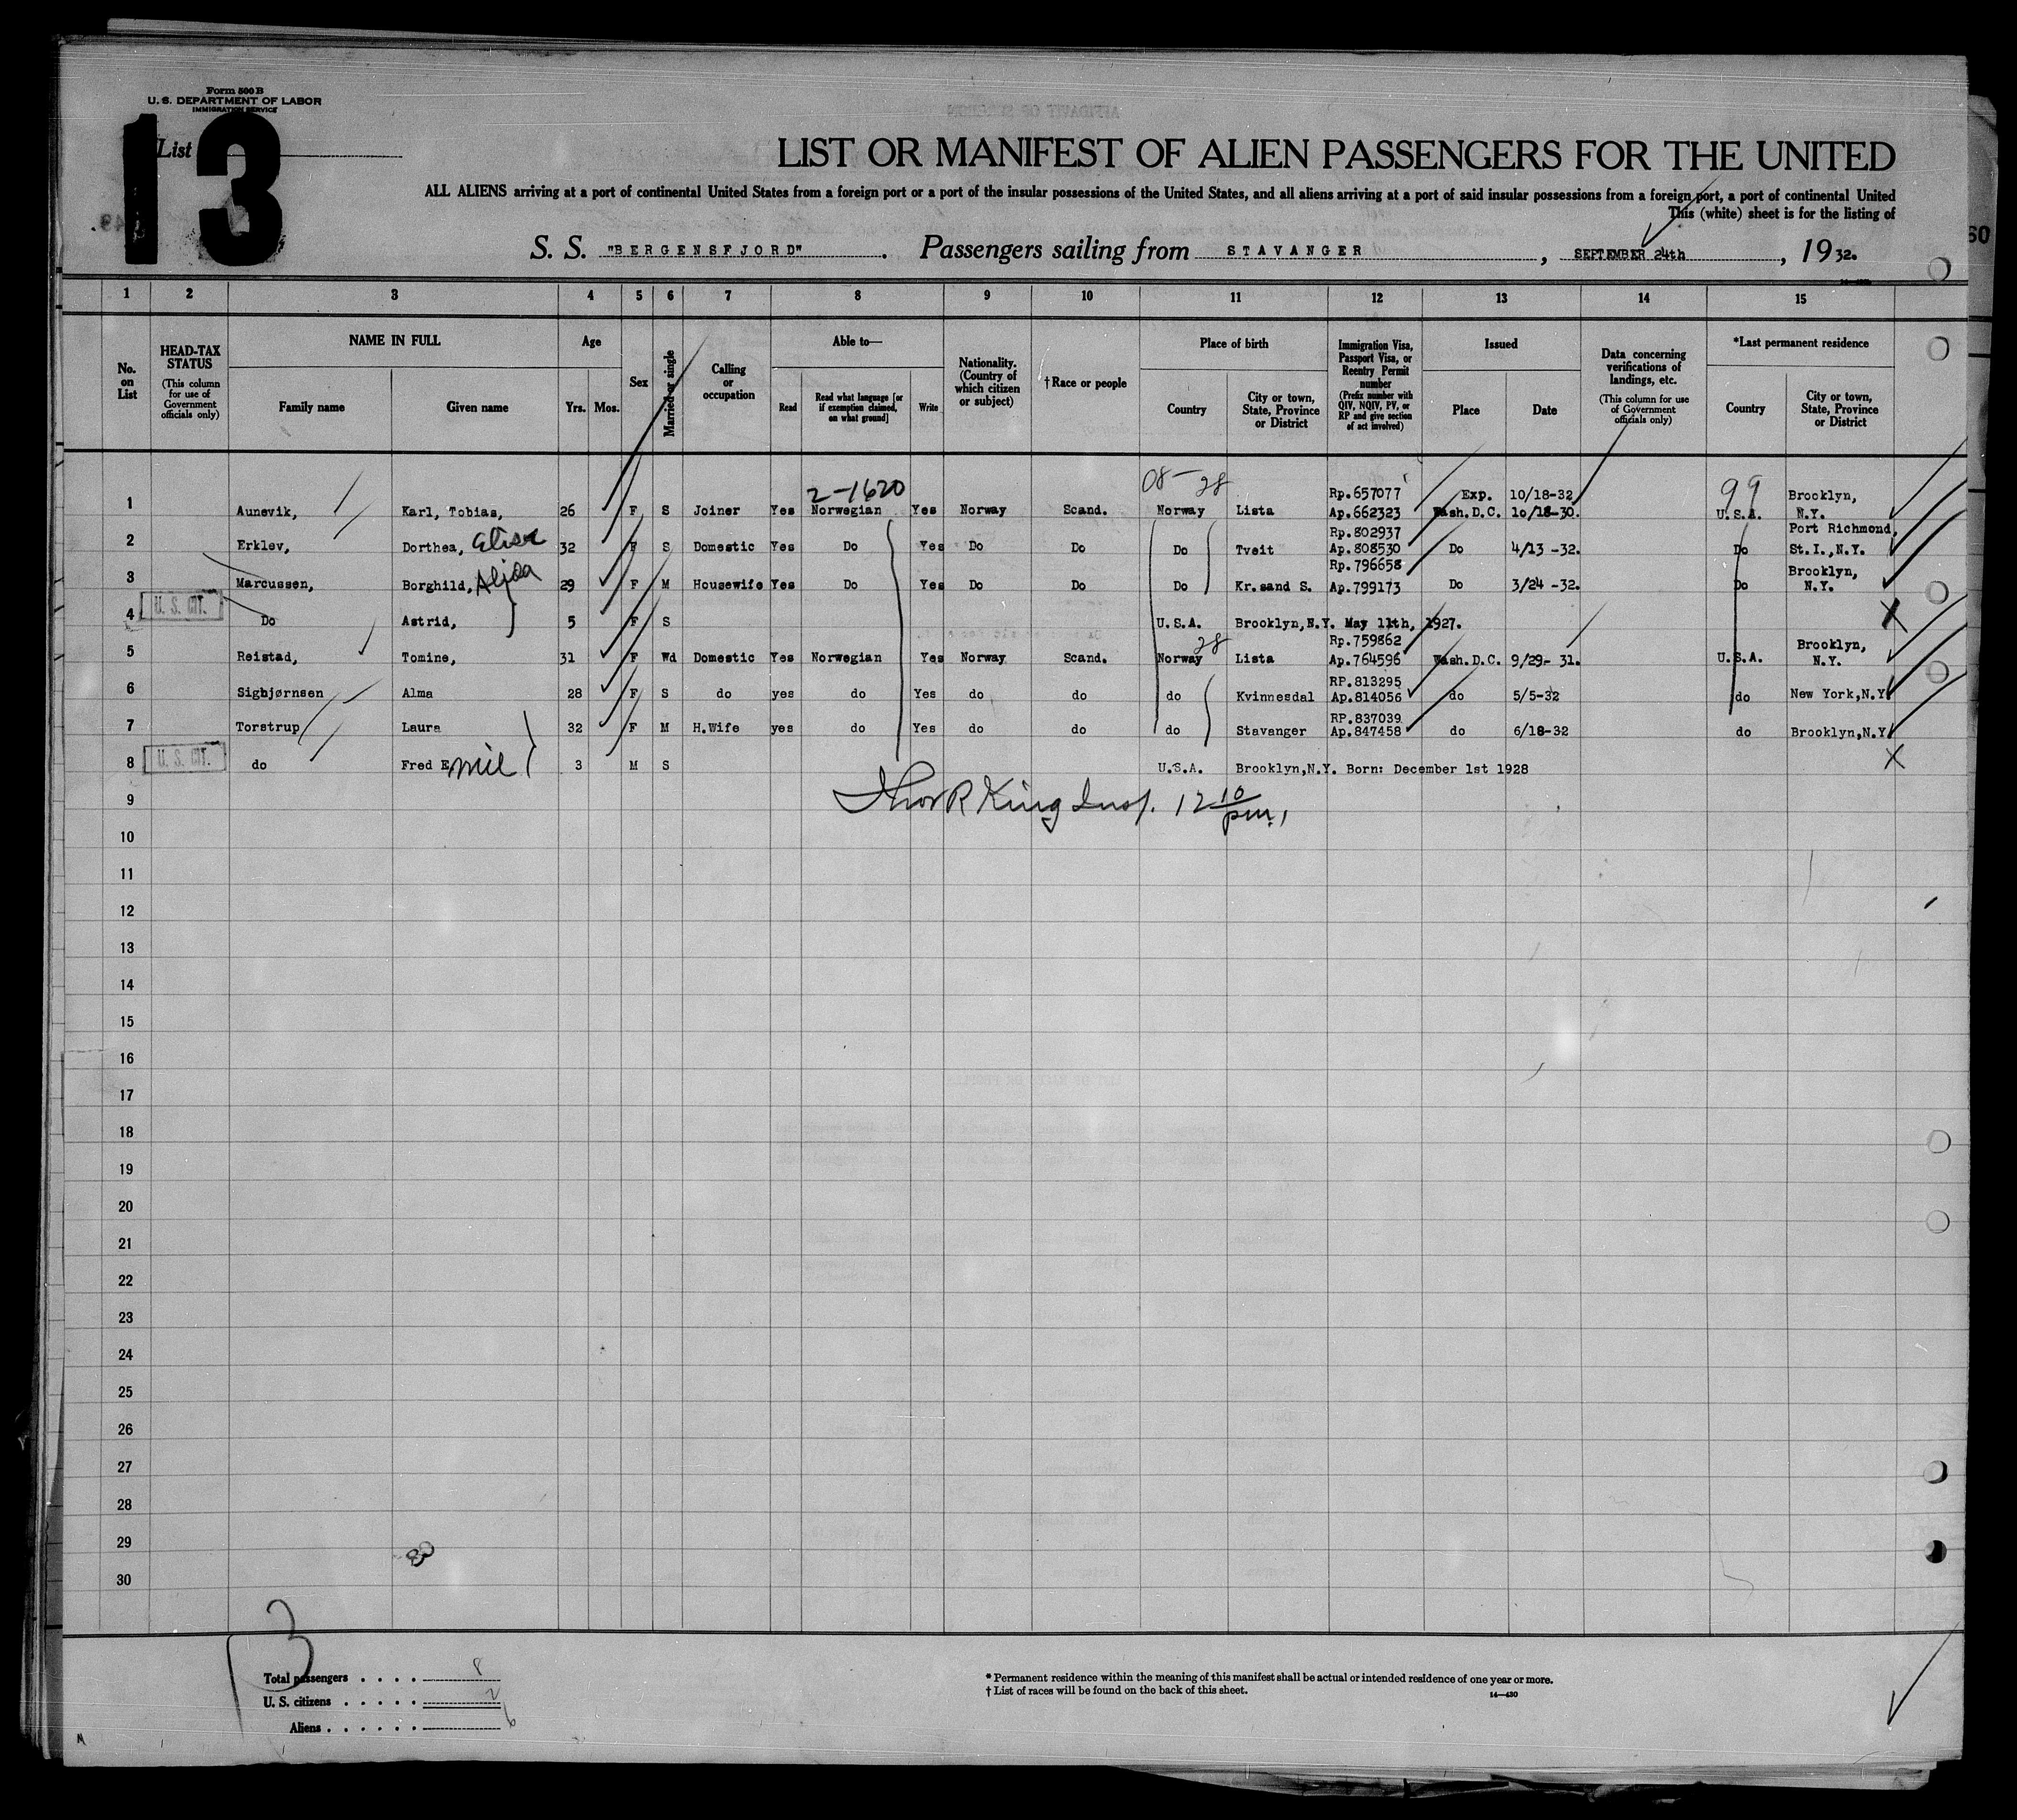 Form 500 B
U. S. DEPARTMENT OF LABOR
IMMIGRATION SERVICE
List
13
LIST OR MANIFEST OF ALIEN PASSENGERS FOR THE UNITED
ALL ALIENS arriving at a port of continental United States from a foreign port or a port of the insular possessions of the United States, and all aliens arriving at a port of said insular possessions from a foreign port, a port of continental United
This (white) sheet is for the listing of
S. S. "BERGENSFJORD". Passengers sailing from STAVANGER, SEPTEMBER 24th, 1932.
1 2 3 4 5 6 7 8 9 10 11 12 13 14 15
No. on List
HEAD-TAX STATUS (This column for use of Government officials only)
NAME IN FULL
Family name Given name
Age
Yrs. Mos.
Sex
Married or single
Calling or occupation
Able to—
Read Read what language [or if exemption claimed, on what ground] Write
Nationality. (Country of which citizen or subject)
†Race or people
Place of birth
Country City or town, State, Province or District
Immigration Visa, Passport Visa, or Reentry Permit number (Prefix number with QIV, NQIV, PV, or RP and give section of act involved)
Issued
Place Date
Data concerning verifications of landings, etc. (This column for use of Government officials only)
*Last permanent residence
Country City or town, State, Province or District
2-1620 08-28 Rp.657077 Exp. 10/18-32 99 Brooklyn,
1 Aunevik, Karl, Tobias, 26 F S Joiner Yes Norwegian Yes Norway Scand. Norway Lista Ap.662323 Wash.D.C. 10/18-30. U.S.A. N.Y.
Rp.802937 Port Richmond,
2 Erklev, Dorthea, Elise 32 F S Domestic Yes Do Yes Do Do Do Tveit Ap.808530 Do 4/13 -32. Do St.I.,N.Y.
Rp.796658 Brooklyn,
3 Marcussen, Borghild, 29 F M Housewife Yes Do Yes Do Do Do Kr.sand S. Ap.799173 Do 3/24 -32. Do N.Y.
U. S. CIT.
4 Do Astrid, 5 F S U.S.A. Brooklyn,N.Y. May 11th, 1927.
28 Rp.759862 Brooklyn,
5 Reistad, Tomine, 31 F Wd Domestic Yes Norwegian Yes Norway Scand. Norway Lista Ap.764596 Wash.D.C. 9/29- 31. U.S.A. N.Y.
RP.813295
6 Sigbjørnsen Alma 28 F S do yes do Yes do do do Kvinnesdal Ap.814056 do 5/5-32 do New York,N.Y.
RP.837039
7 Torstrup Laura 32 F M H.Wife yes do Yes do do do Stavanger Ap.847458 do 6/18-32 do Brooklyn,N.Y.
U. S. CIT.
8 do Fred Emil 3 M S U.S.A. Brooklyn,N.Y. Born: December 1st 1928
9 R King Insp. 12 10 pm.
10
11
12
13
14
15
16
17
18
19
20
21
22
23
24
25
26
27
28
29
30
3
Total passengers . . . . 8
U. S. citizens . . . . . 2
Aliens . . . . . . 6
* Permanent residence within the meaning of this manifest shall be actual or intended residence of one year or more.
† List of races will be found on the back of this sheet.
14—430